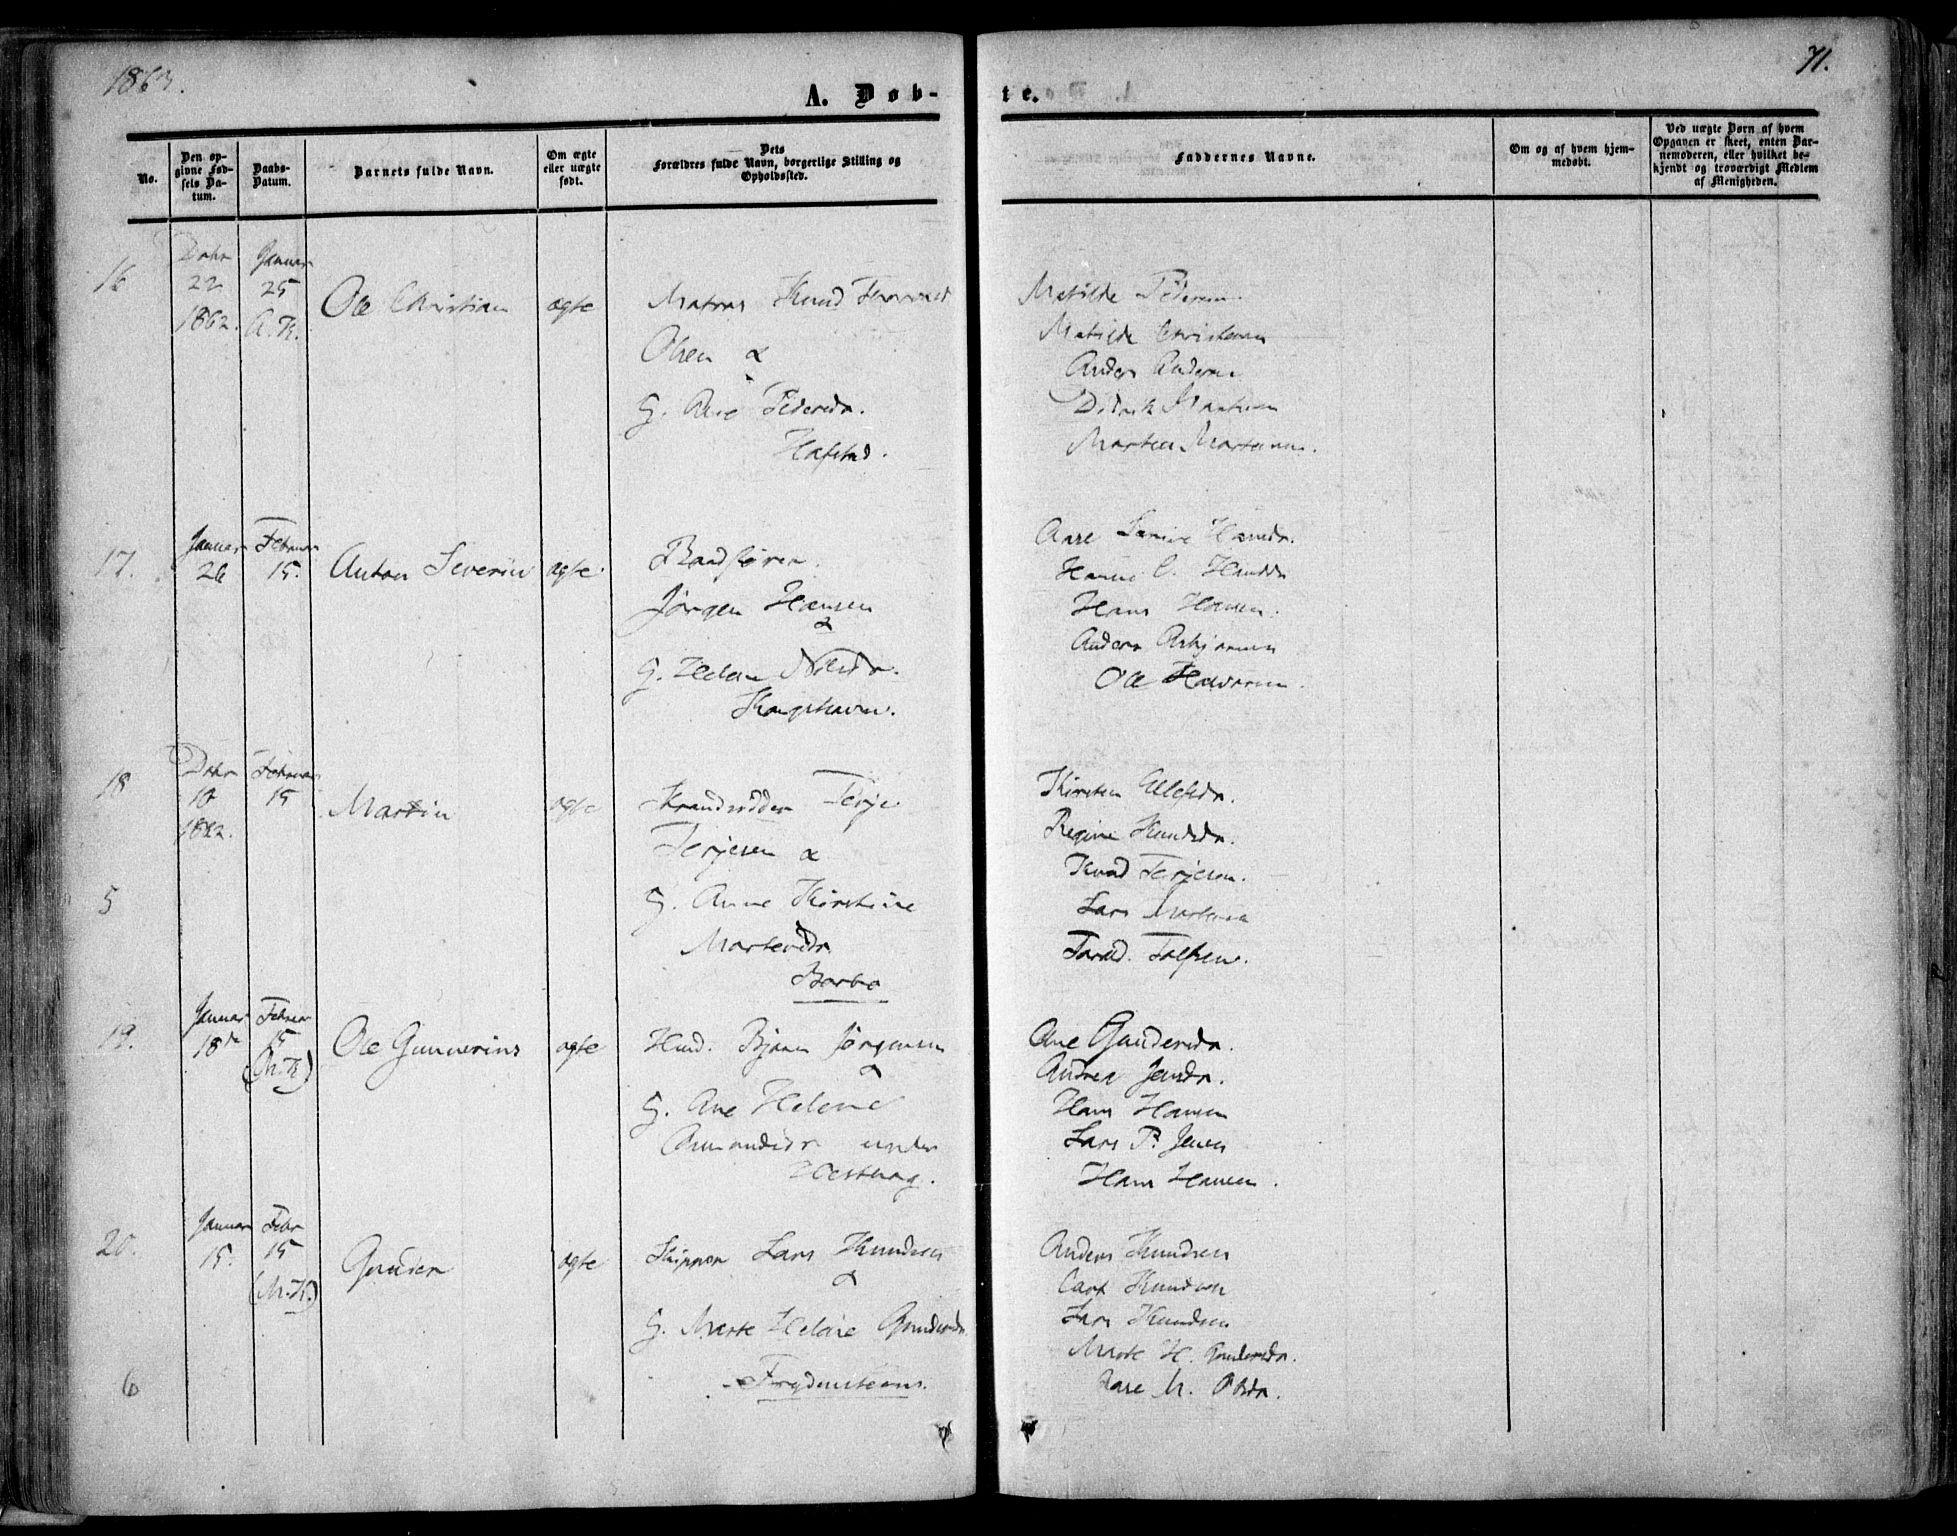 1863.
71.
A. Døb-
te.
No.
Den op-
givne Fød-
sels Da-
tum.
Daabs-
Datum.
Barnets fulde Navn.
Om ægte
eller uægte
født.
Dets
Forældres fulde Navn, borgerlige Stilling og
Opholdssted.
Faddernes Navne.
Om og af hvem hjem-
medøbt.
Ved uægte Børn af hvem
Opgaven er skeet, enten Bar-
nemoderen, eller hvilket be-
kjendt og troværdigt Medlem
af Menigheden.
16
22
1862.
Januar
25
Ole Christian
ægte
Matros Knud
Olsen &
G. Ane Pedersdr.
Matilde Pedersen
Matilde Christensen
Anders Andersen
Didrik
Morten Mortensen.
17.
Januar
26
Februar
15.
Anton Severin
ægte
Jørgen Hansen
&
G. Helene Nilsdr.
Hansdr.
Hanne C. Hansdr
Hans Hansen.
Anders Asbjørnsen
Ole Halvorsen.
18
10
1862.
Februar
15
Martin
ægte
Strandsidder Terje
Terjesen &
G. Anne Kirstine
Mortensdr.
Barbo
Kirsten Ellefsdr.
Regine Knudsdr.
Knud Terjesen.
Lars Mortensen
5
19.
Januar
18de
Februar
15
(N.K)
Ole Gunnerius
ægte
Husd. Bjørn Jørgensen
&
G. Ane Helene
Amundsdr under
Ane Gundersdr.
Andrea Jensdr.
Hans Hansen
Lars P. Jensen
Hans Hansen.
20.
Januar
15.
Febr
15
(N.K.)
Gunder
ægte
Skipper Lars Knudsen
&
G. Marte Helene Gundersdr
Anders Knudsen
Carl Knudsen
Lars Knudsen
Marte H. Gundersdr.
Aase M. Olsdr.
6